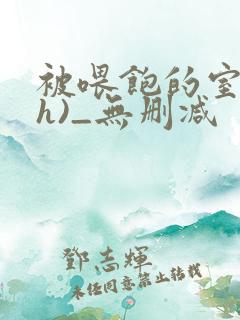 被喂飽的室
h)_無刪減
鄧志輝
未任同意禁止转载